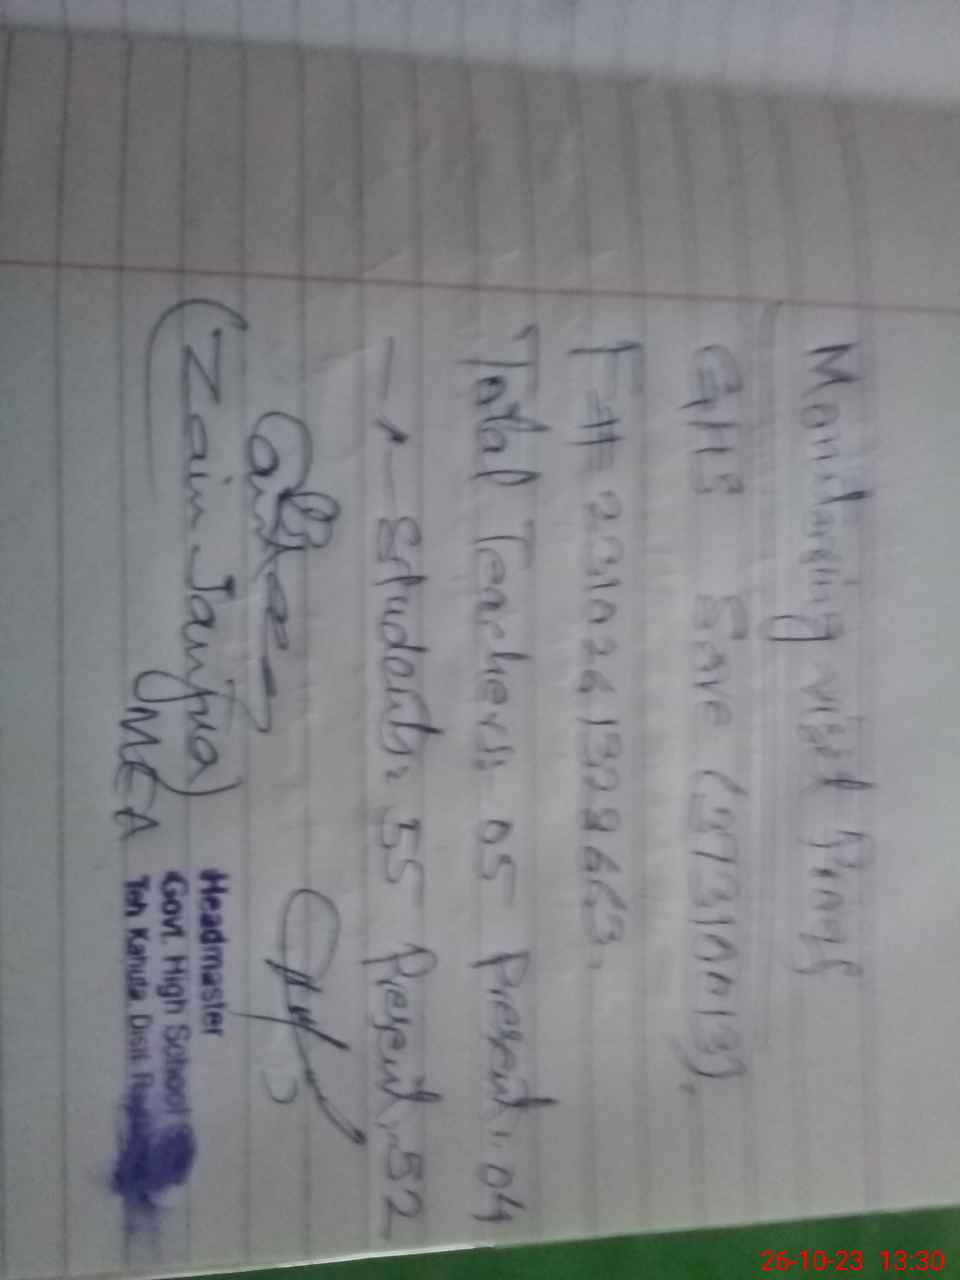 Monitoring visit Proof
GHS Save (37310013)
F# 2310261328663
Total Teachers:- 05 Present:- 04
-"- Students:- 55 Present:- 52
(Zain Janjua)
MEA
Headmaster
Govt. High School
Teh Kahuta Distt.
26-10-23 13:30